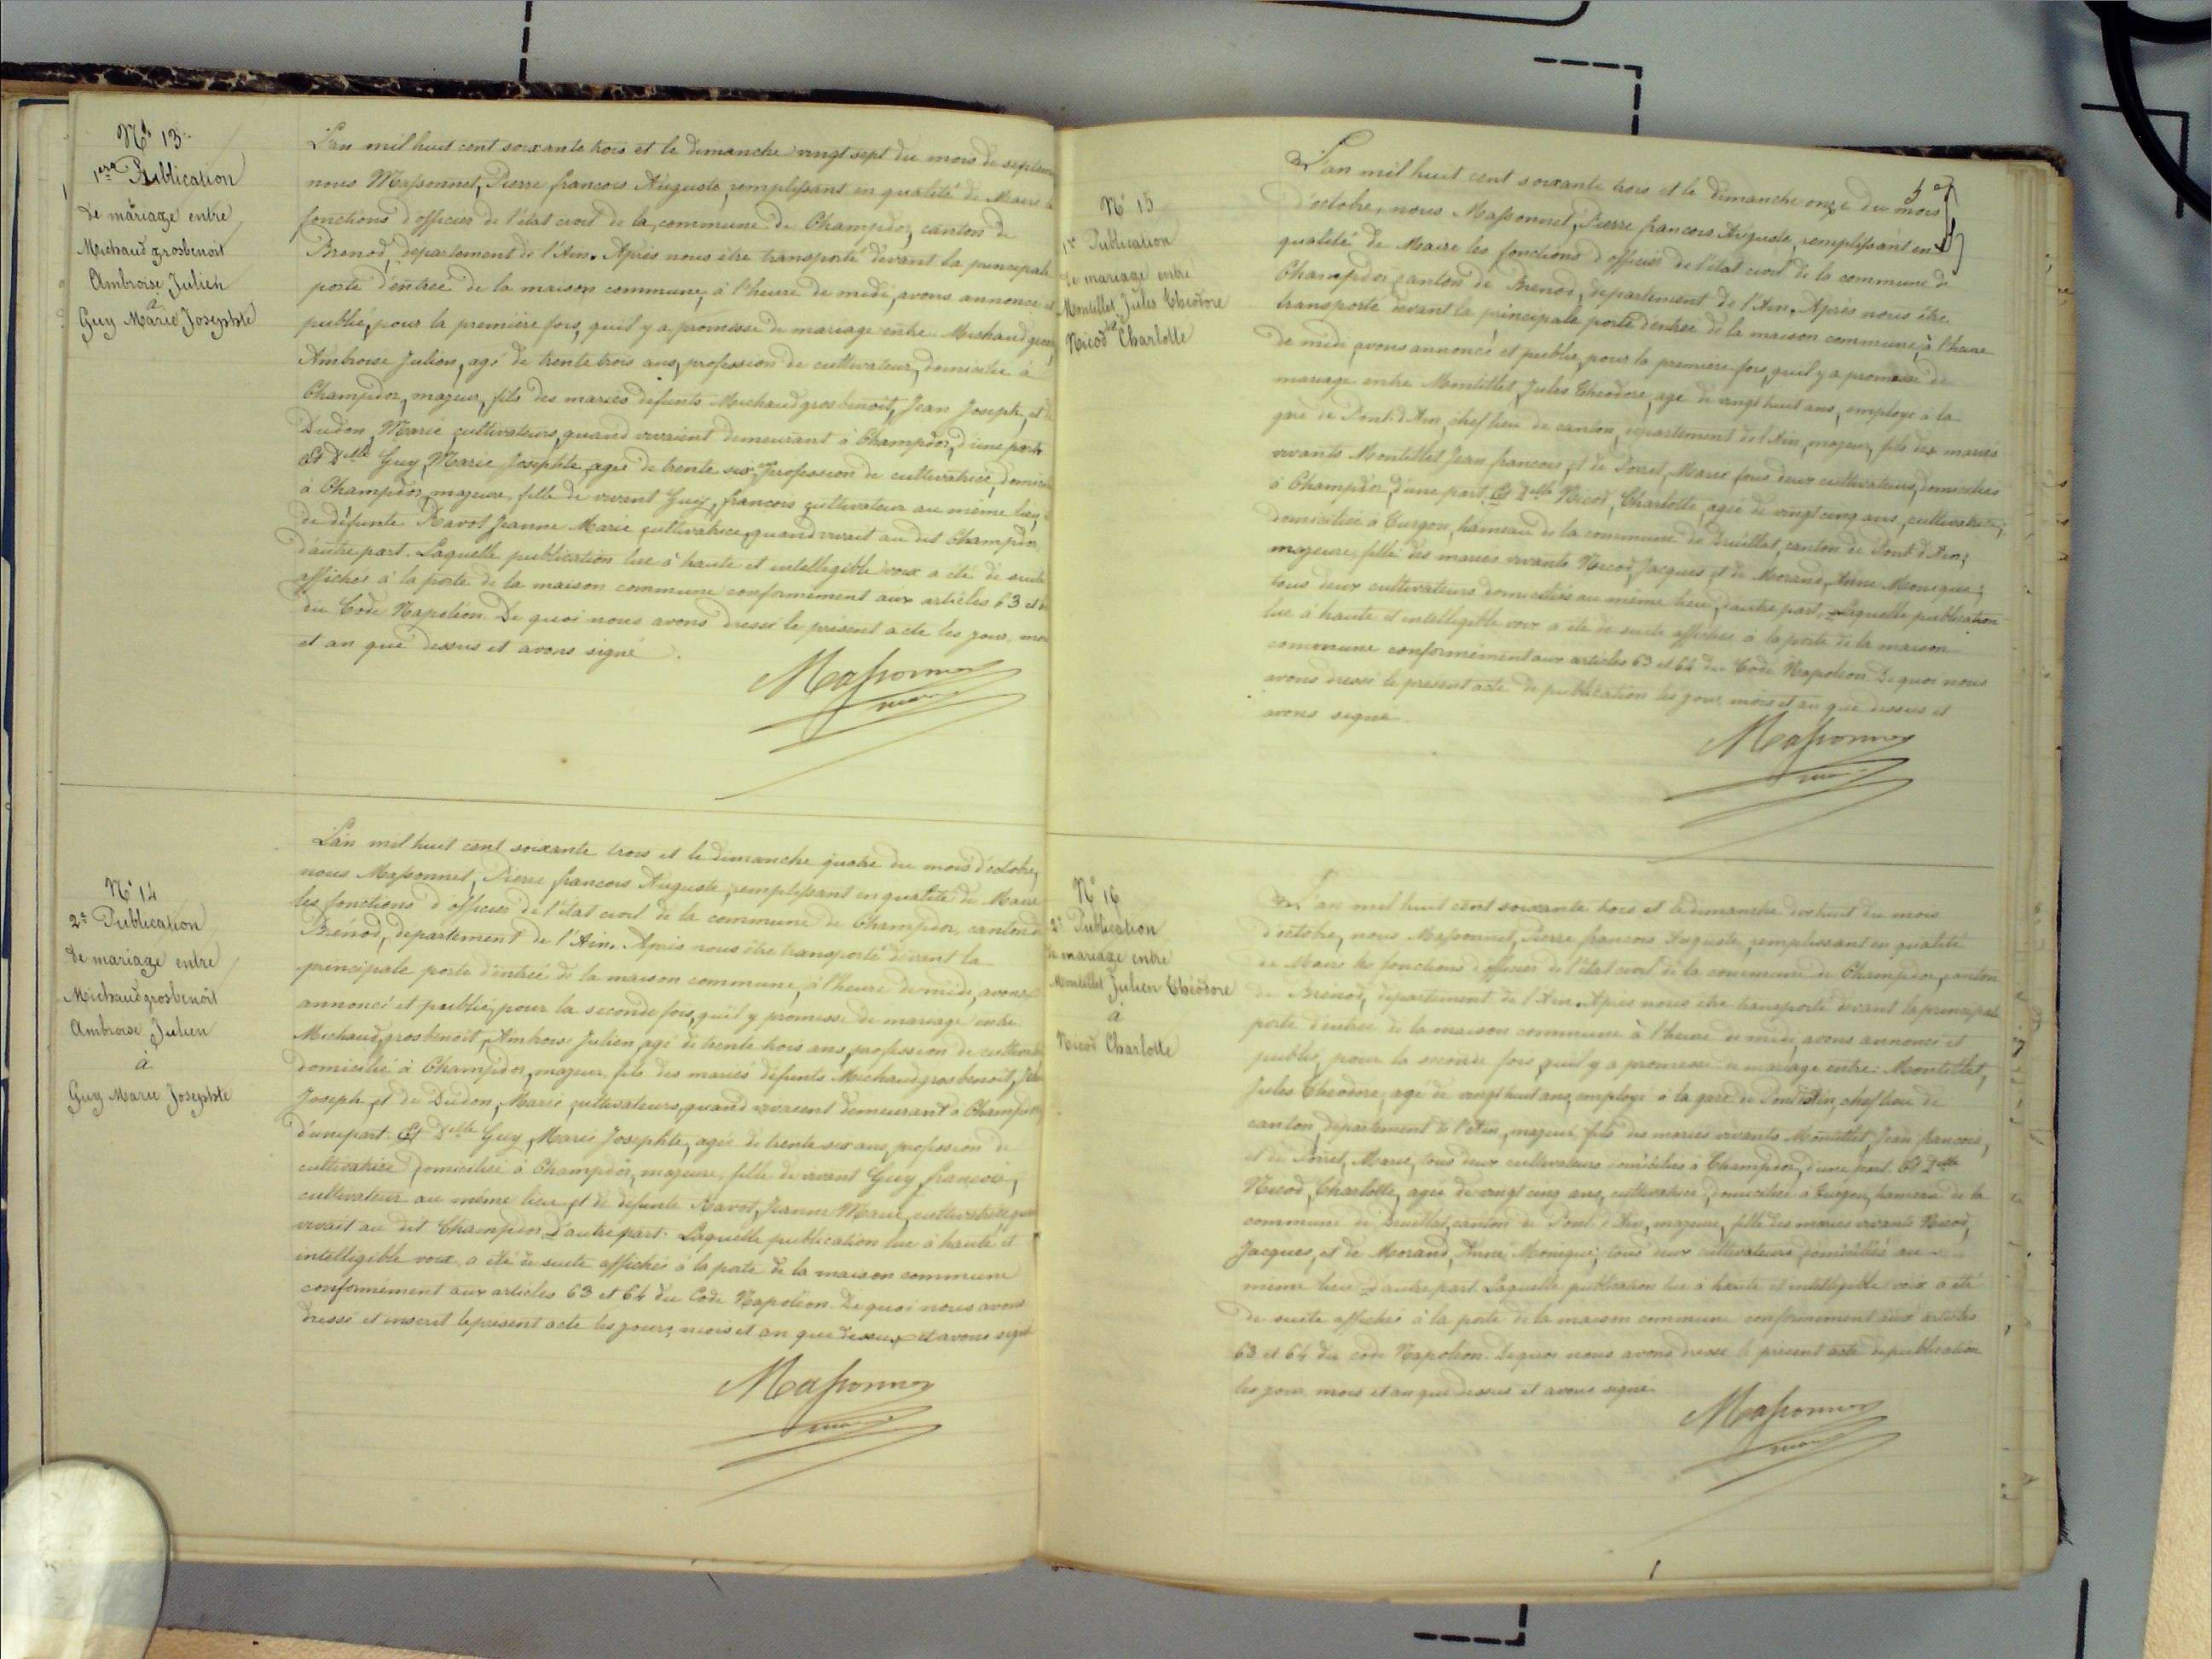 N° 13.
1ère Publication
de mariage entre
Michaud grosbenoit
Ambroise Julien
à
Guy Marie Josephte
L'an mil huit cent soixante trois et le dimanche vingt sept du mois de septembre
nous Massonnet, Pierre francois Auguste, remplissant en qualité de Maire les
fonctions d'officier de l'état civil de la commune de Champdor, canton de
Brenod, département de l'Ain. Après nous être transporté devant la principale
porte d'entrée de la maison commune, à l'heure de midi, avons annoncé et
publié, pour la première fois, qu'il y a promesse de mariage entre Michaud
Ambroise Julien, agé de trente trois ans, profession de cultivateur, domicilié à
Champdor, majeur, fils des mariés défunts Michaudgrosbenoit, Jean Joseph, et de
Dudon, Marie, cultivateurs, quand vivaient demeurant à Champdor, d'une part
Et Delle Guy, Marie Josephte, agée de trente six, profession de cultivatrice,
à Champdor, majeure, fille de vivant Guy, francois, cultivateur au même lieu, et
de défunte Ravot Jeanne Marie, cultivatrice, quand vivait au dit Champdor
d'autre part. Laquelle publication lue à haute et intelligible voix a été de suite
affichée à la porte de la maison commune conformément aux articles 63 et
du Code Napoléon. De quoi nous avons dressé le présent acte les jour, mois
et an que dessus et avons signé.
Massonnet
maire
N° 14
2e Publication
de mariage entre
Michaudgrosbenoit
Ambroise Julien
à
Guy Marie Josephte
L'an mil huit cent soixante trois et le dimanche quatre du mois d'octobre,
nous Massonnet, Pierre francois Auguste, remplissant en qualité de Maire
les fonctions d'officier de l'état civil de la commune de Champdor, canton de
Brénod, département de l'Ain. Après nous être transporté devant la
principale porte d'entrée de la maison commune, à l'heure de midi, avons
annoncé et publié, pour la seconde fois, qu'il y promesse de mariage entre
Michaudgrosbenoit, Ambroise Julien, agé de trente trois ans, profession de
domicilié à Champdor, majeur, fils des mariés défunts Michaudgrosbenoit, Jean
Joseph, et de Dudon, Marie, cultivateurs, quand vivaient demeurant à Champdor,
d'une part. Et Delle Guy, Marie Josephte, agée de trente six ans, profession de
cultivatrice, domiciliée à Champdor, majeure, fille de vivant Guy francois,
cultivateur au même lieu, et de défunte Ravot, Jeanne Marie, cultivatrice quand
vivait au dit Champdor, d'autre part. Laquelle publication lue à haute et
intelligible voix, a été de suite affichée à la porte de la maison commune
conformément aux articles 63 et 64 du Code Napoléon. De quoi nous avons
dressé et inscrit le présent acte les jour, mois et an que dessus et avons signé
Massonnet
maire
N° 15
1re Publication
de mariage entre
Montillet Jules Théodore
Nicod Charlotte
L'an mil huit cent soixante trois et le dimanche onze du mois
d'octobre, nous Massonnet, Pierre francois Auguste, remplissant en
qualité de Maire les fonctions d'officier de l'état civil de la commune de
Champdor, canton de Brenod, département de l'Ain. Après nous être
transporté devant la principale porte d'entrée de la maison commune, à l'heure
de midi, avons annoncé et publié, pour la première fois, qu'il y a promesse de
mariage entre Montillet, Jules Théodore, agé de vingt huit ans, employé à la
gare de Pont-d'Ain, chef lieu de canton, département de l'Ain, majeur, fils des mariés
vivants Montillet Jean francois, et de Porret, Marie, tous deux cultivateurs, domiciliés
à Champdor, d'une part. Et Delle Nicod, Charlotte, agée de vingt cinq ans, cultivatrice,
domiciliée à Turgon, hameau de la commune de Druillat, canton de Pont d'Ain,
majeure, fille des mariés vivants Nicod, Jacques, et de Morand, Anne Monique,
tous deux cultivateurs domiciliés au même lieu, d'autre part. Laquelle publication
lue à haute et intelligible voix a été de suite affichée à la porte de la maison
commune conformément aux articles 63 et 64 du Code Napoléon. De quoi nous
avons dressé le présent acte de publication les jour, mois et an que dessus et
avons signé.
Massonnet
maire
N° 16
2e Publication
de mariage entre
Montillet Julien Théodore
à
Nicod Charlotte
L'an mil huit cent soixante trois et le dimanche dix huit du mois
d'octobre, nous Massonnet, Pierre francois Auguste, remplissant en qualité
de Maire les fonctions d'officier de l'état civil de la commune de Champdor, canton
de Brénod, département de l'Ain. Après nous être transporté devant la principale
porte d'entrée de la maison commune à l'heure de midi, avons annoncé et
publié, pour la seconde fois, qu'il y a promesse de mariage entre Montillet,
Jules Théodore, agé de vingt huit ans, employé à la gare de Pont d'Ain, chef lieu de
canton, département de l'Ain, majeur, fils des mariés vivants Montillet, Jean francois,
et de Porret, Marie, tous deux cultivateurs domiciliés à Champdor, d'une part. Et Delle
Nicod, Charlotte, agée de vingt cinq ans, cultivatrice, domiciliée à Turgon, hameau de la
commune de Druillat, canton de Pont d'Ain, majeure, fille des mariés vivants Nicod,
Jacques, et de Morand, Anne Monique, tous deux cultivateurs domiciliés au
même lieu d'autre part. Laquelle publication lue à haute et intelligible voix a été
de suite affichée à la porte de la maison commune conformément aux articles
63 et 64 du code Napoléon. De quoi nous avons dressé le présent acte de publication
les jour, mois et an que dessus et avons signé.
Massonnet
maire